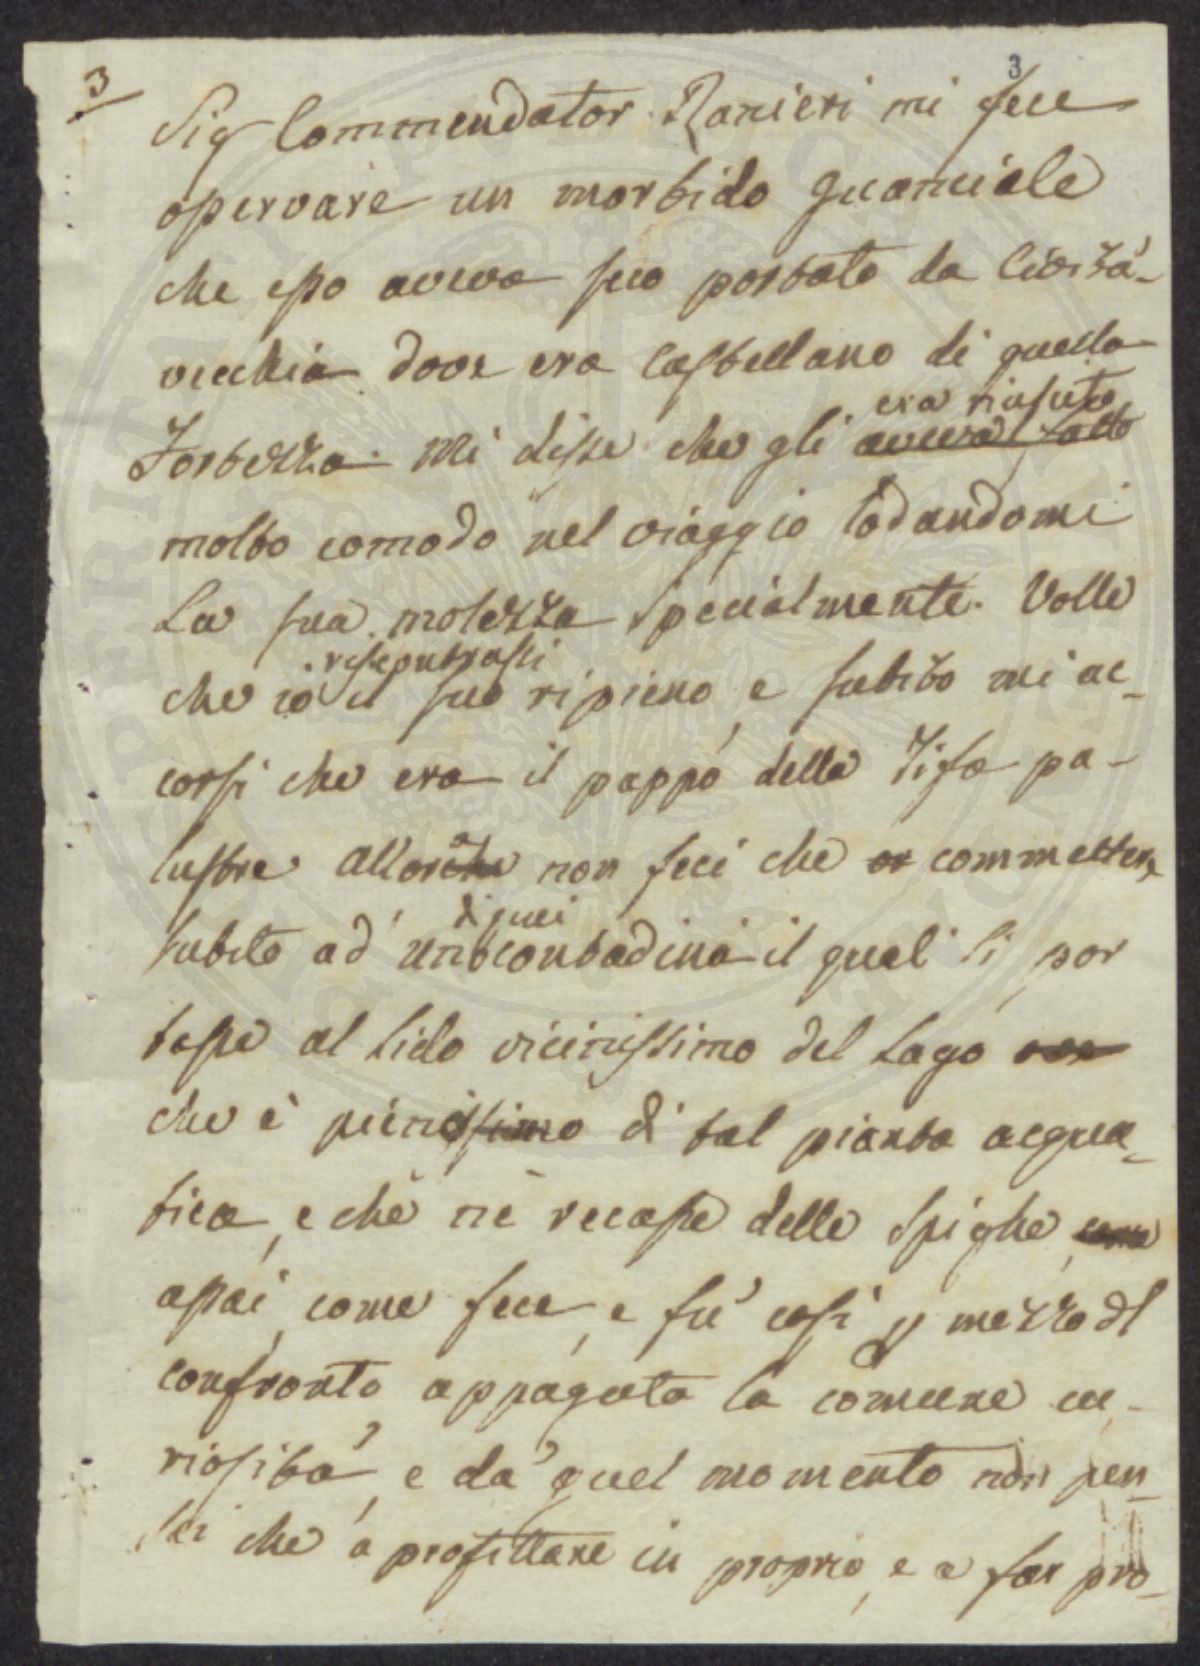 3
3
Sig Commendator Ranieri mi fece
osservare un morbido guanciale
che esso aveva seco portato da Cività-
vecchia dove era Castellano di quella
era riuscito
Fortezza. Mi disse che gli aveva fatto
molto comodo nel viaggio lodandomi
La sua molezza specialmente. Volle
che io il suo ripieno, e subito mi ac-
corsi che era il pappo della Tifa pa-
lustre allorche non feci che commettere
di quei
subito ad uno contadini il quale si por
tasse al Lido vicinissimo del Lago
che è pienissimo di tal pianta acqua-
tica, e che ne recasse delle Spighe
assai, come fece, e fu' così p mezzo dl
confronto appagata la comune cu-
riosità, e da quel momento non pen
sai che a profittare in proprio, e a far pro-